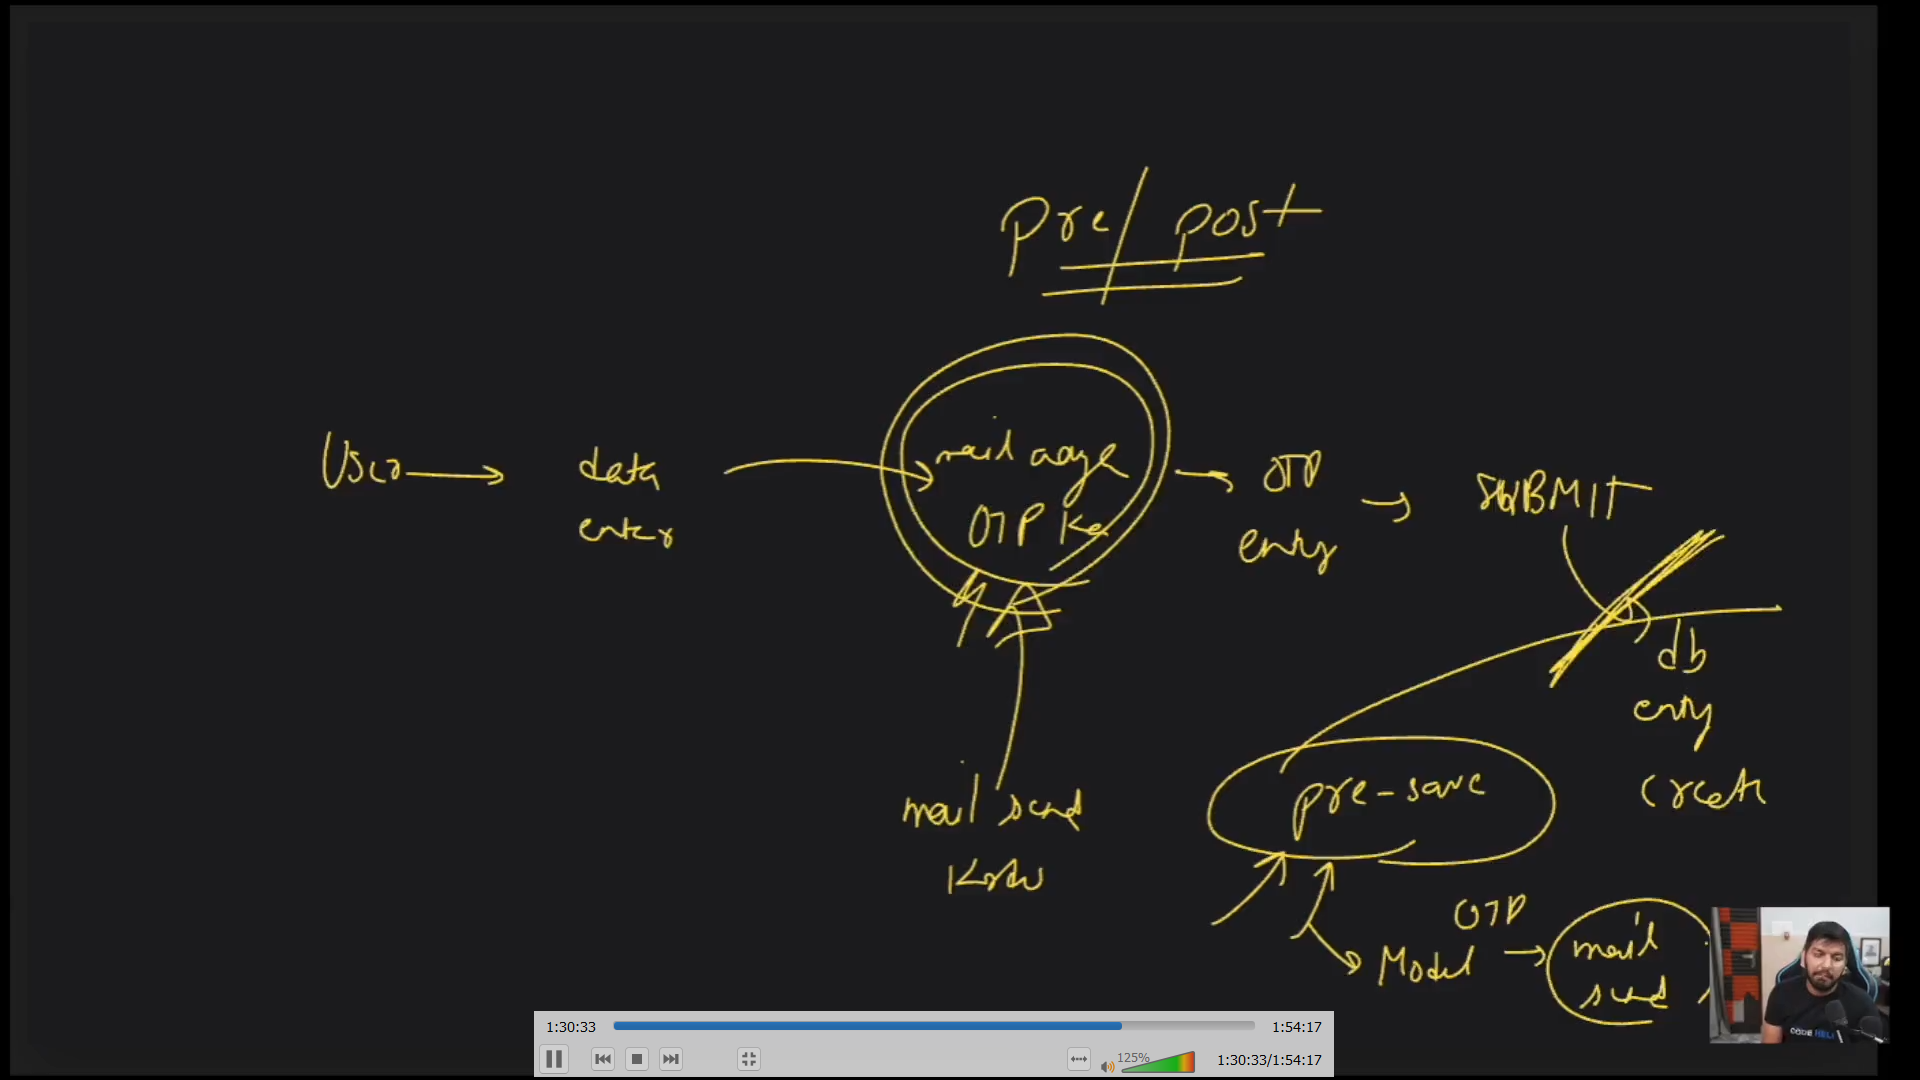 Pre/post
User → data enter → mail aayega OTP ka → OTP entry → SUBMIT
db entry create
mail send Krdu
pre-save
OTP
Model → mail send
CODE HEL
1:30:33
1:54:17
125%
1:30:33/1:54:17